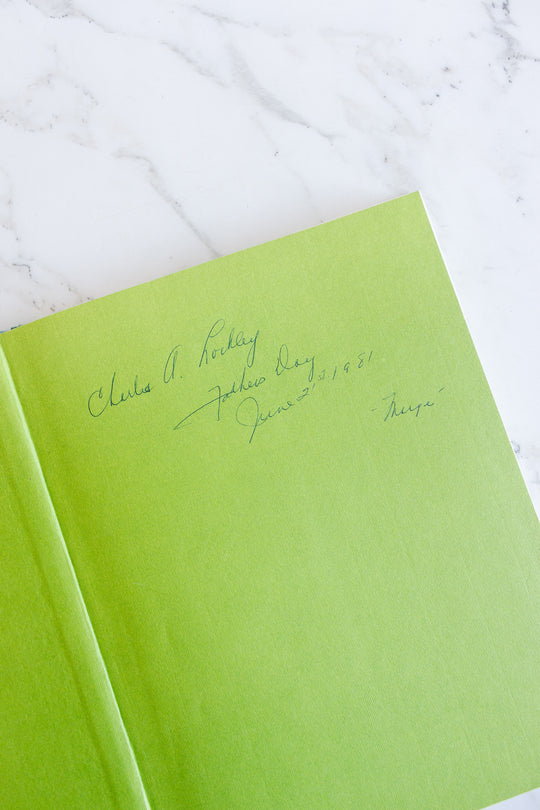 Charles A. Lockley
Fathers Day
June 1981